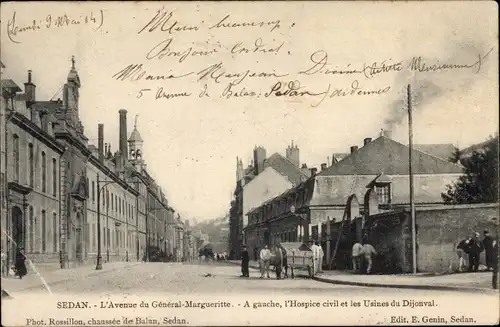 (Lundi 9 Mai 04)
Merci beaucoup.
Bonjour cordial
Maria
5 Avenue de Balan, Sedan Ardennes
SEDAN. - L'Avenue du Général-Margueritte. - A gauche, l'Hospice civil et les Usines du Dijonval.
Phot. Rossillon, chaussée de Balan, Sedan. Edit. E. Genin, Sedan